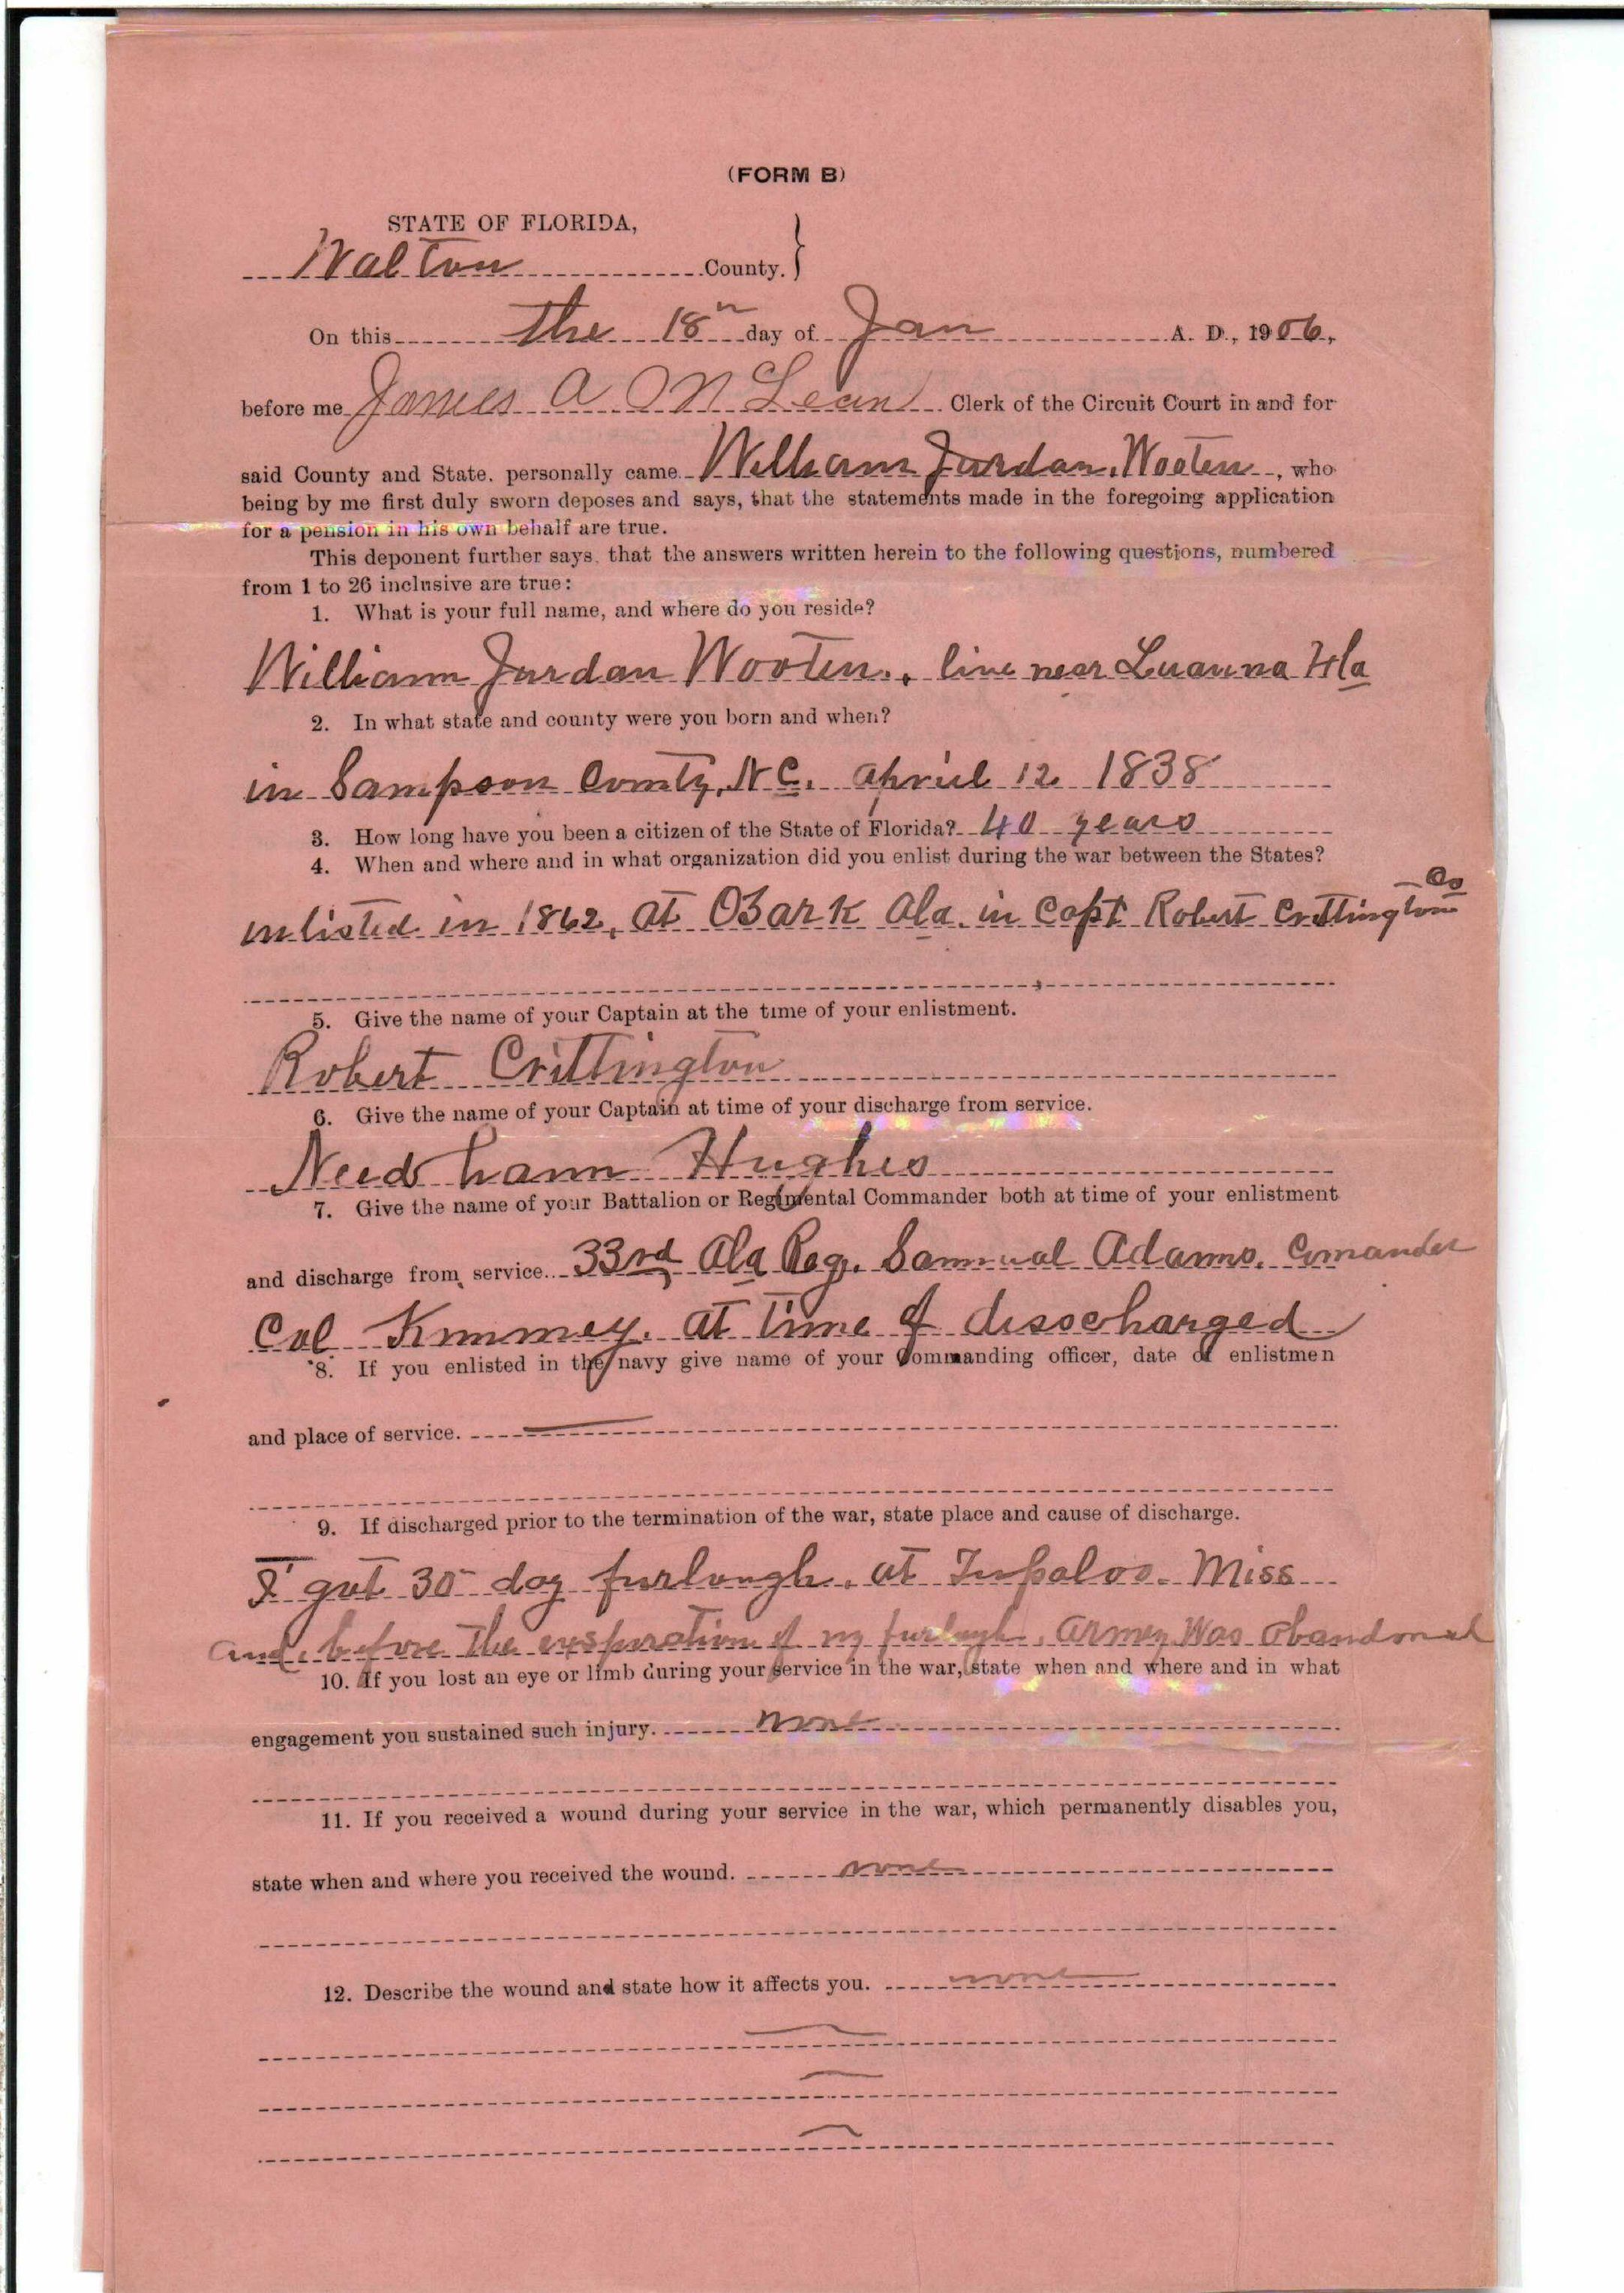 (FORM B)
STATE OF FLORIDA,
Walton County.
On this the 18th day of Jan A. D., 1906,
before me James A McLean Clerk of the Circuit Court in and for
said County and State. personally came William Jurdan, Wooten, who
being by me first duly sworn deposes and says, that the statements made in the foregoing application
for a pension in his own behalf are true.
This deponent further says, that the answers written herein to the following questions, numbered
from 1 to 26 inclusive are true:
1. What is your full name, and where do you reside?
William Jurdan Wooten., live near Luanna Fla
2. In what state and county were you born and when?
in Sampson County, N C. april 12 1838
3. How long have you been a citizen of the State of Florida? 40 years
4. When and where and in what organization did you enlist during the war between the States?
enlisted in 1862, at Ozark Ala. in Capt Robert Crittingtons Co
5. Give the name of your Captain at the time of your enlistment.
Robert Crittington
6. Give the name of your Captain at time of your discharge from service.
Needham Hughes
7. Give the name of your Battalion or Regimental Commander both at time of your enlistment
and discharge from service. 33rd Ala Reg. Samual Adams. Comander
Col Kimmey. at time of disscharged
8. If you enlisted in the navy give name of your Commanding officer, date of enlistmen
and place of service.
9. If discharged prior to the termination of the war, state place and cause of discharge.
I got 30 day furlough, at Tupaloo. Miss
and, before the exspiration of my furlough, Armey Was Abandoned
10. If you lost an eye or limb during your service in the war, state when and where and in what
engagement you sustained such injury. none
11. If you received a wound during your service in the war, which permanently disables you,
state when and where you received the wound. none
12. Describe the wound and state how it affects you. none